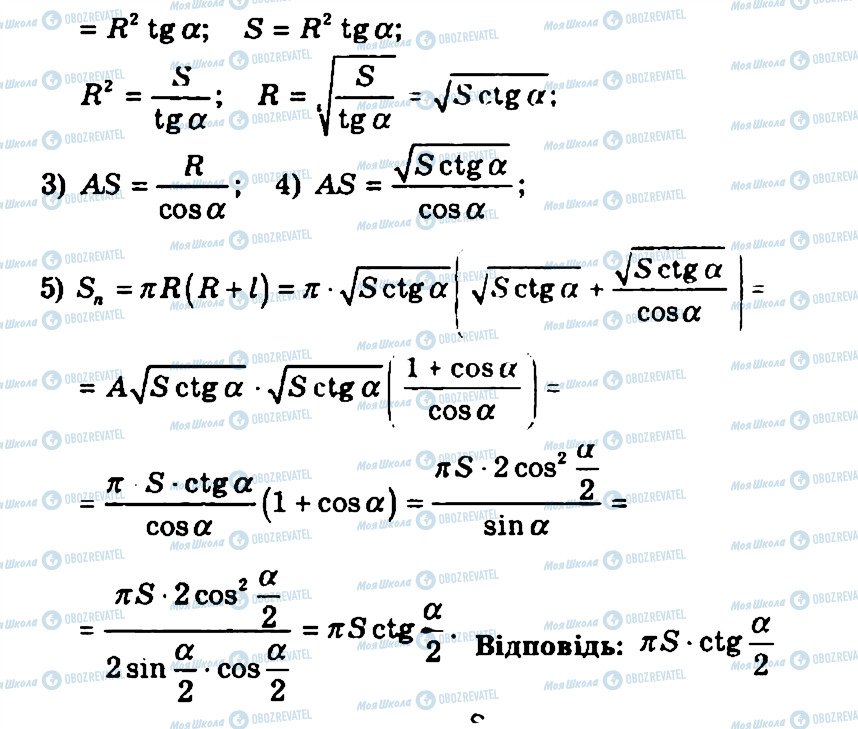 = R² tg α; S = R² tg α;
R² = S / tg α; R = √(S / tg α) = √(S ctg α);
3) AS = R / cos α; 4) AS = √(S ctg α) / cos α;
5) Sₙ = πR(R + l) = π · √(S ctg α) (√(S ctg α) + √(S ctg α) / cos α) =
= A√(S ctg α) · √(S ctg α) ((1 + cos α) / cos α) =
= (π · S · ctg α / cos α)(1 + cos α) = (πS · 2 cos² α/2) / sin α =
= (πS · 2 cos² α/2) / (2 sin α/2 · cos α/2) = πS ctg α/2. Відповідь: πS · ctg α/2